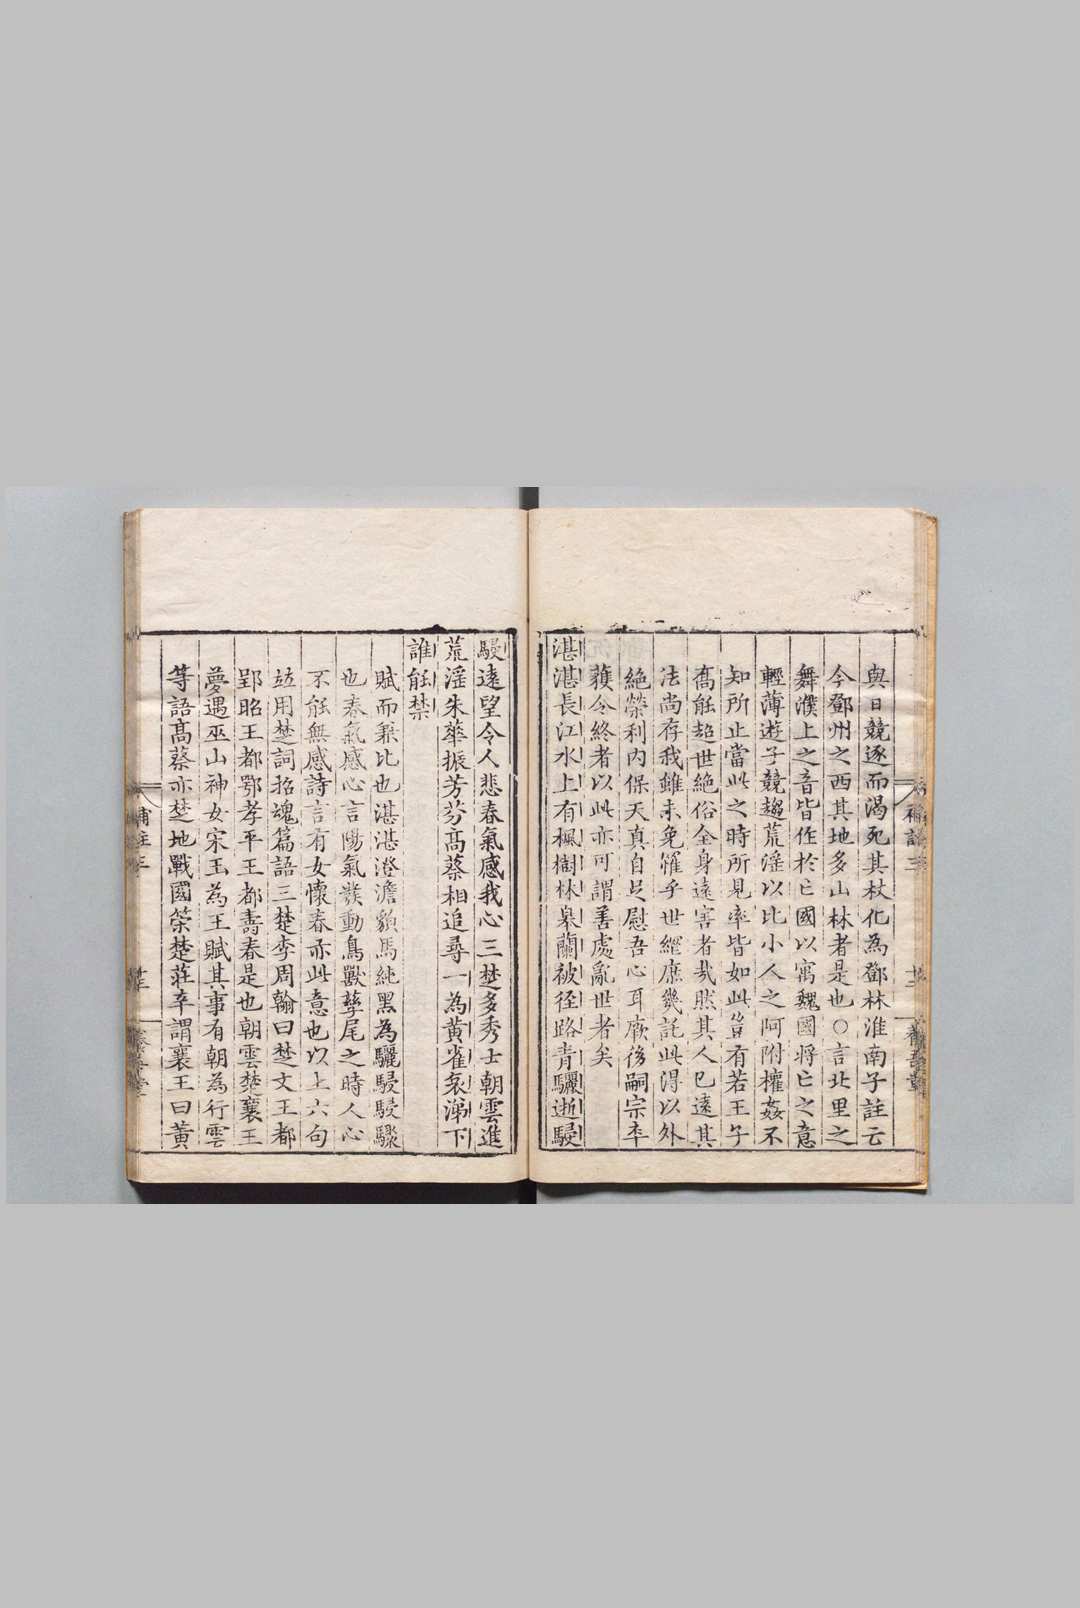 與日競逐而渴死其杖化為鄧林淮南子註云
今鄧州之西其地多山林者是也○言北里之
舞濮上之音皆作於亡國以寓魏國將亡之意
輕薄遊子競趨荒淫以比小人之阿附權姦不
知所止當此之時所見率皆如此豈有若王子
喬能超世絕俗全身遠害者哉然其人已遠其
法尚存我雖未免罹乎世網庶幾託此得以外
絕榮利內保天真自足慰吾心耳厥後嗣宗卒
獲令終者以此亦可謂善處亂世者矣
湛湛長江水上有楓樹林皋蘭被徑路青驪逝駸
駸遠望令人悲春氣感我心三楚多秀士朝雲進
荒淫朱華振芬芳高蔡相追尋一為黃雀哀涕下
誰能禁
賦而兼比也湛湛澄澹貌馬純黑為驪駸駸驟
也春氣感心言陽氣發動鳥獸孳尾之時人心
不能無感詩言有女懷春亦此意也以上六句
竝用楚詞招魂篇語三楚李周翰曰楚文王都
郢昭王都鄂考平王都壽春是也朝雲楚襄王
夢遇巫山神女宋玉為王賦其事有朝為行雲
等語高蔡亦楚地戰國策楚莊辛謂襄王曰黃
補註三